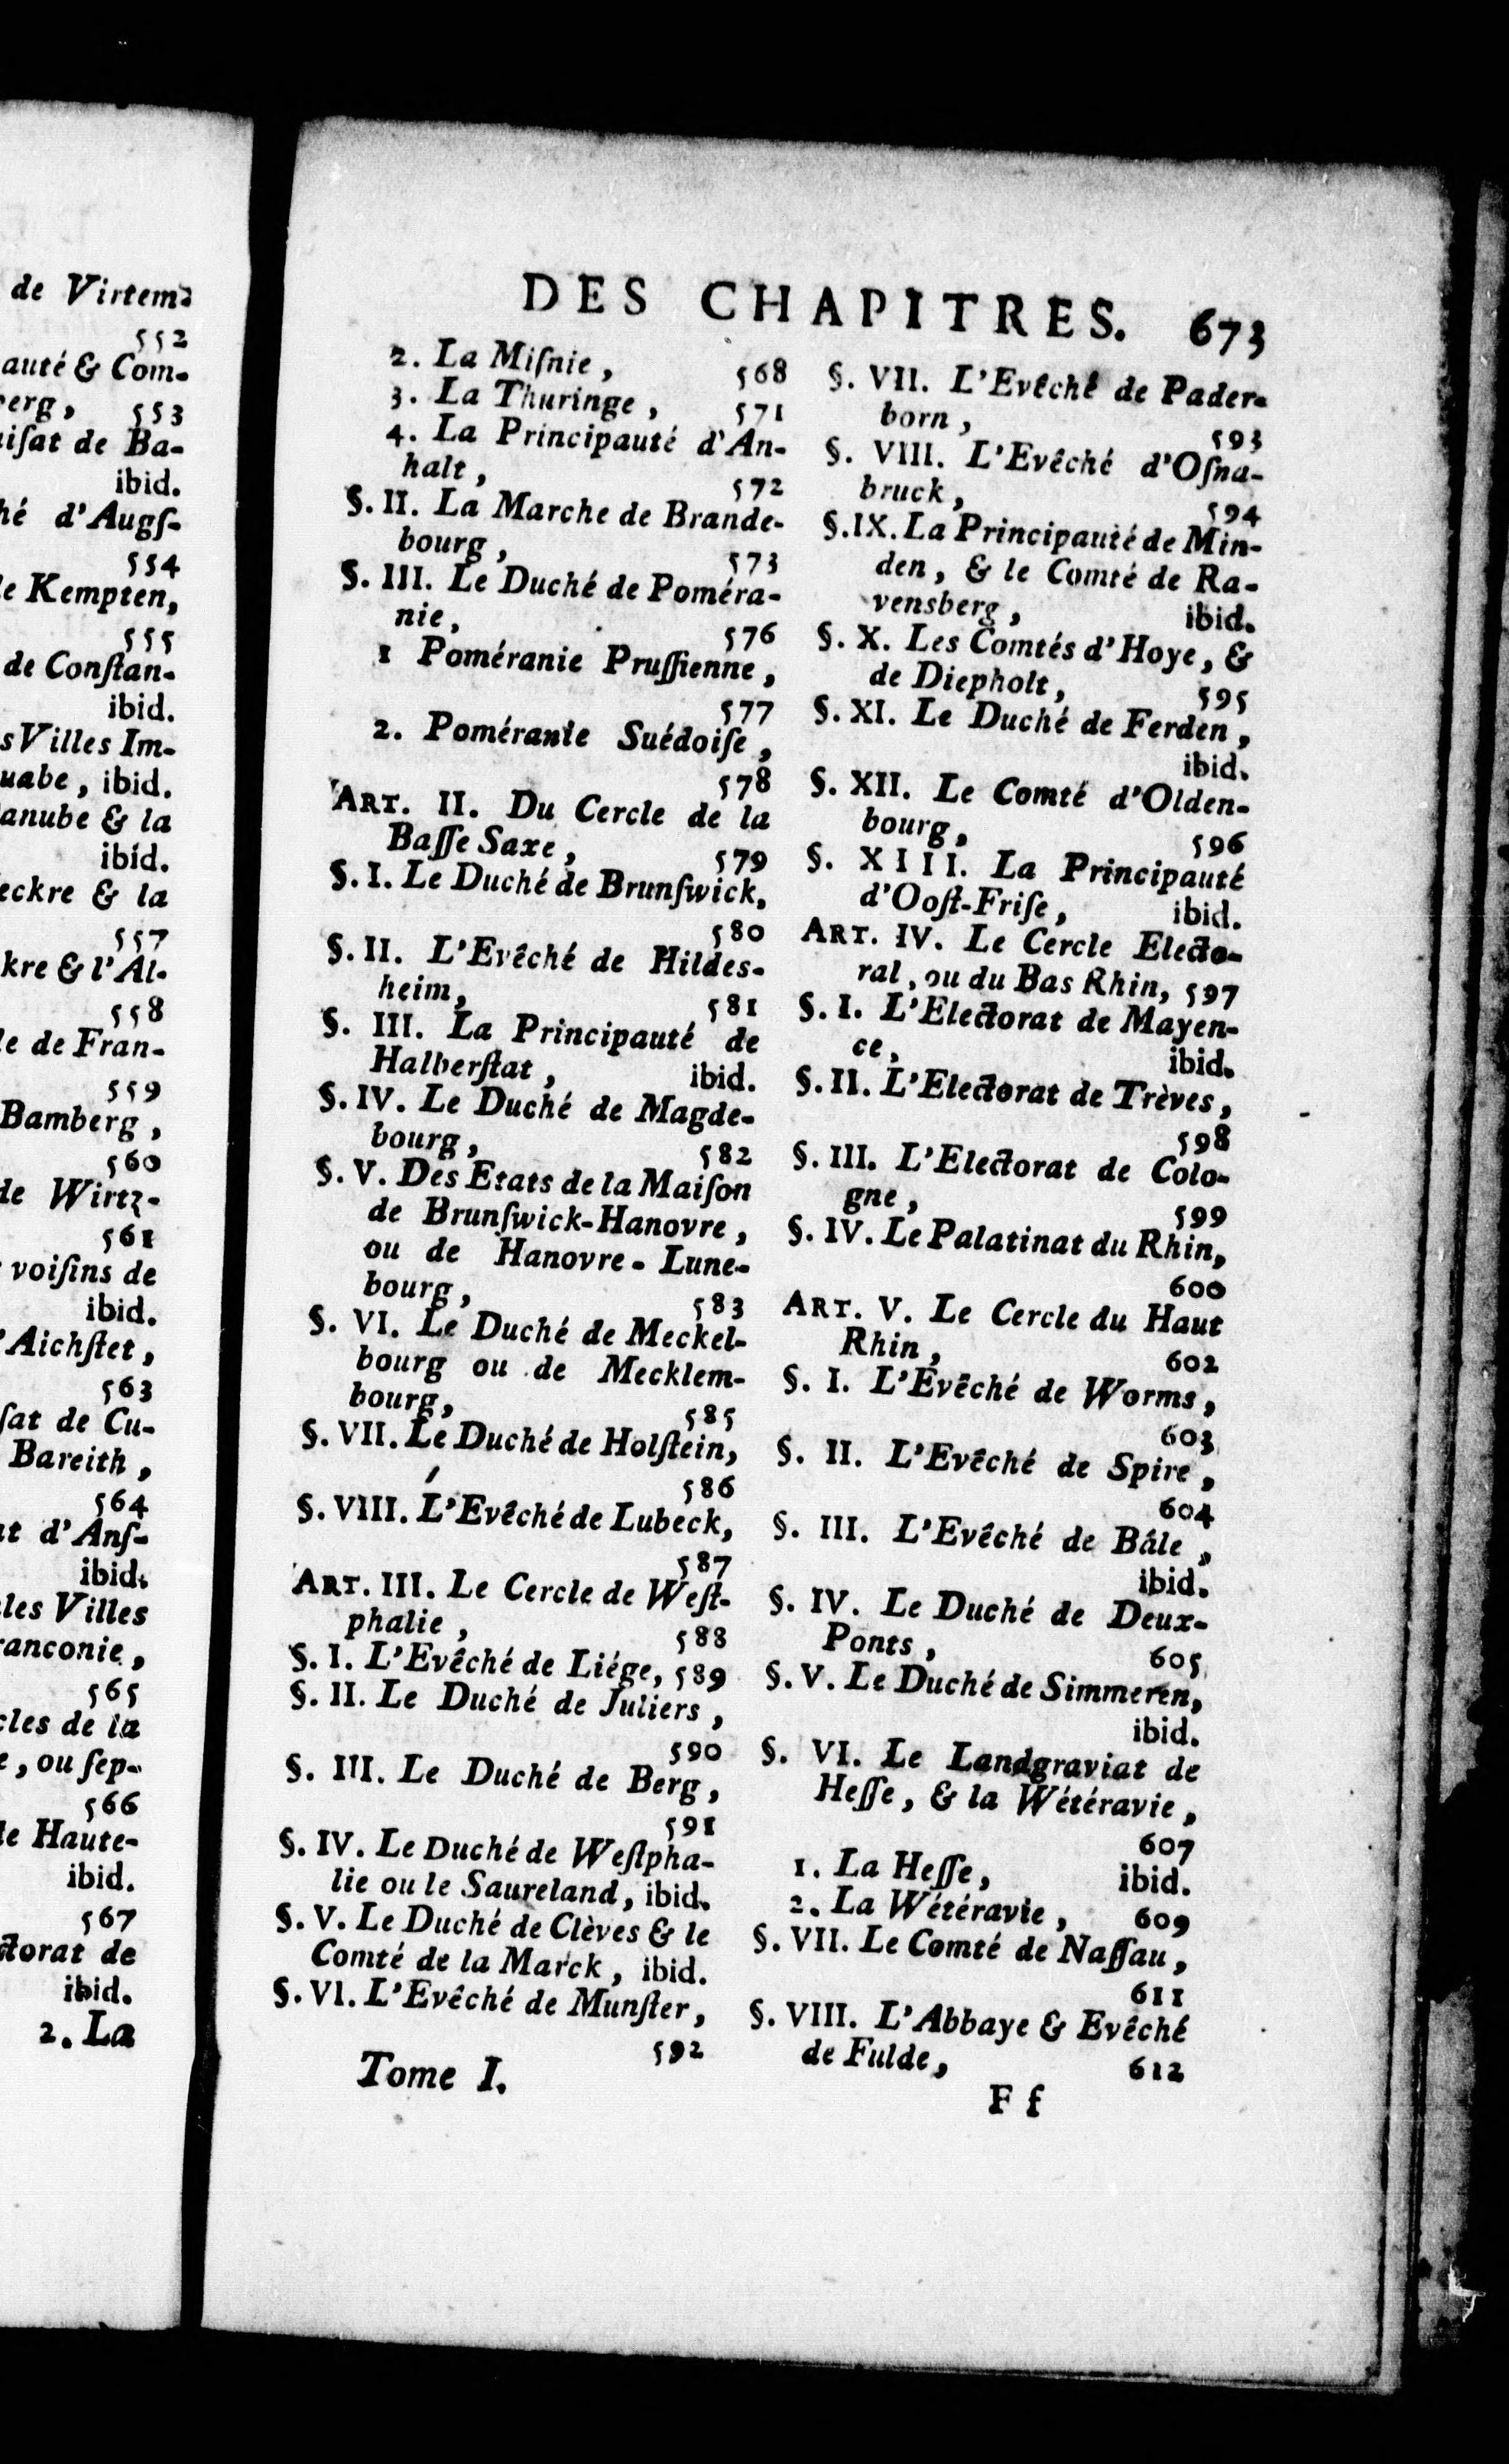 de Virtem-
552
auté & Com-
erg, 553
iſat de Ba-
ibid.
hé d'Augſ-
554
le Kempten,
555
de Conſtan-
ibid.
s Villes Im-
uabe, ibid.
anube & la
ibid.
eckre & la
557
kre & l'Al-
558
le de Fran-
559
Bamberg,
560
de Wirtz-
561
voiſins de
ibid.
'Aichſtet,
563
ſat de Cu-
Bareith,
564
at d'Anſ-
ibid.
les Villes
ranconie,
565
cles de la
e, ou ſep-
566
le Haute-
ibid.
567
ctorat de
ibid.
2. La
DES CHAPITRES. 673
2. La Miſnie, 568
3. La Thuringe, 571
4. La Principauté d'An-
halt, 572
§. II. La Marche de Brande-
bourg, 573
§. III. Le Duché de Poméra-
nie, 576
1 Poméranie Pruſſienne,
577
2. Poméranie Suédoiſe,
578
ART. II. Du Cercle de la
Baſſe Saxe, 579
§. I. Le Duché de Brunſwick,
580
§. II. L'Evêché de Hildes-
heim, 581
§. III. La Principauté de
Halberſtat, ibid.
§. IV. Le Duché de Magde-
bourg, 582
§. V. Des Etats de la Maiſon
de Brunſwick-Hanovre,
ou de Hanovre-Lune-
bourg, 583
§. VI. Le Duché de Meckel-
bourg ou de Mecklem-
bourg, 585
§. VII. Le Duché de Holſtein,
586
§. VIII. L'Evêché de Lubeck,
587
ART. III. Le Cercle de Weſt-
phalie, 588
§. I. L'Evêché de Liége, 589
§. II. Le Duché de Juliers,
590
§. III. Le Duché de Berg,
591
§. IV. Le Duché de Weſtpha-
lie ou le Saureland, ibid.
§. V. Le Duché de Clèves & le
Comté de la Marck, ibid.
§. VI. L'Evêché de Munſter,
592
Tome I.
§. VII. L'Evêché de Pader-
born, 593
§. VIII. L'Evêché d'Oſna-
bruck, 594
§. IX. La Principauté de Min-
den, & le Comté de Ra-
vensberg, ibid.
§. X. Les Comtés d'Hoye, &
de Diepholt, 595
§. XI. Le Duché de Ferden,
ibid.
§. XII. Le Comté d'Olden-
bourg, 596
§. XIII. La Principauté
d'Ooſt-Friſe, ibid.
ART. IV. Le Cercle Electo-
ral, ou du Bas Rhin, 597
§. I. L'Electorat de Mayen-
ce, ibid.
§. II. L'Electorat de Trèves,
598
§. III. L'Electorat de Colo-
gne, 599
§. IV. Le Palatinat du Rhin,
600
ART. V. Le Cercle du Haut
Rhin, 602
§. I. L'Evêché de Worms,
603
§. II. L'Evêché de Spire,
604
§. III. L'Evêché de Bâle,
ibid.
§. IV. Le Duché de Deux-
Ponts, 605
§. V. Le Duché de Simmeren,
ibid.
§. VI. Le Landgraviat de
Heſſe, & la Wétéravie,
607
1. La Heſſe, ibid.
2. La Wétéravie, 609
§. VII. Le Comté de Naſſau,
611
§. VIII. L'Abbaye & Evêché
de Fulde, 612
F f